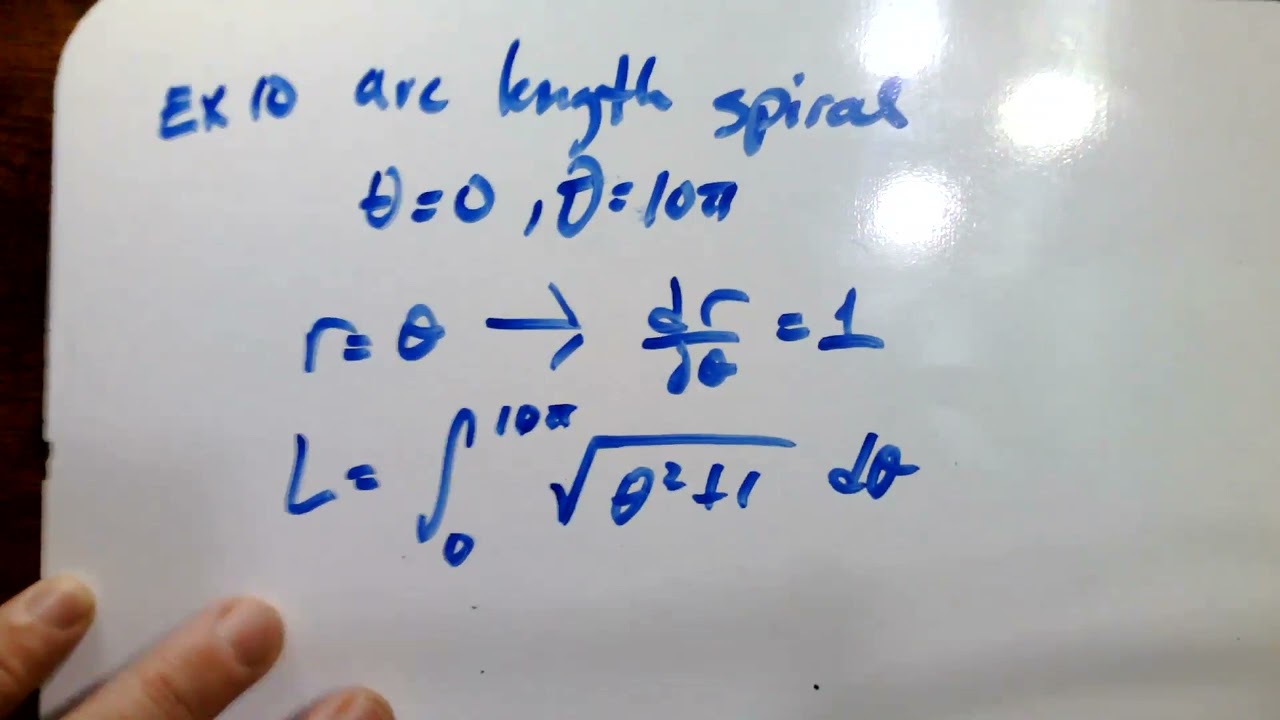 Ex 10 arc length spiral
θ=0, θ=10π
r=θ → dr/dθ = 1
L= ∫₀^10π √(θ²+1) dθ